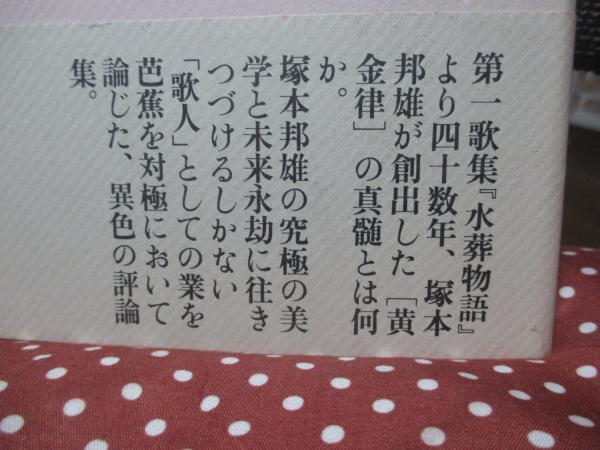 第一歌集『水葬物語』
より四十数年、塚本
邦雄が創出した［黄
金律］の真髄とは何
か。
塚本邦雄の究極の美
学と未来永劫に往き
つづけるしかない
「歌人」としての業を
芭蕉を対極において
論じた、異色の評論
集。